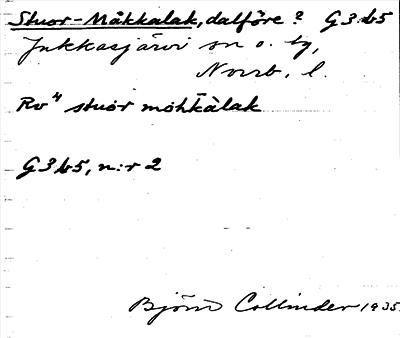 Stuor-Måkkalak, dalföre? G3b5
Jukkasjärvi sn o. tg,
Norrb. l.
Rv⁴ stuor mohkalak
G3b5, n:r 2
Björn Collinder 1935.